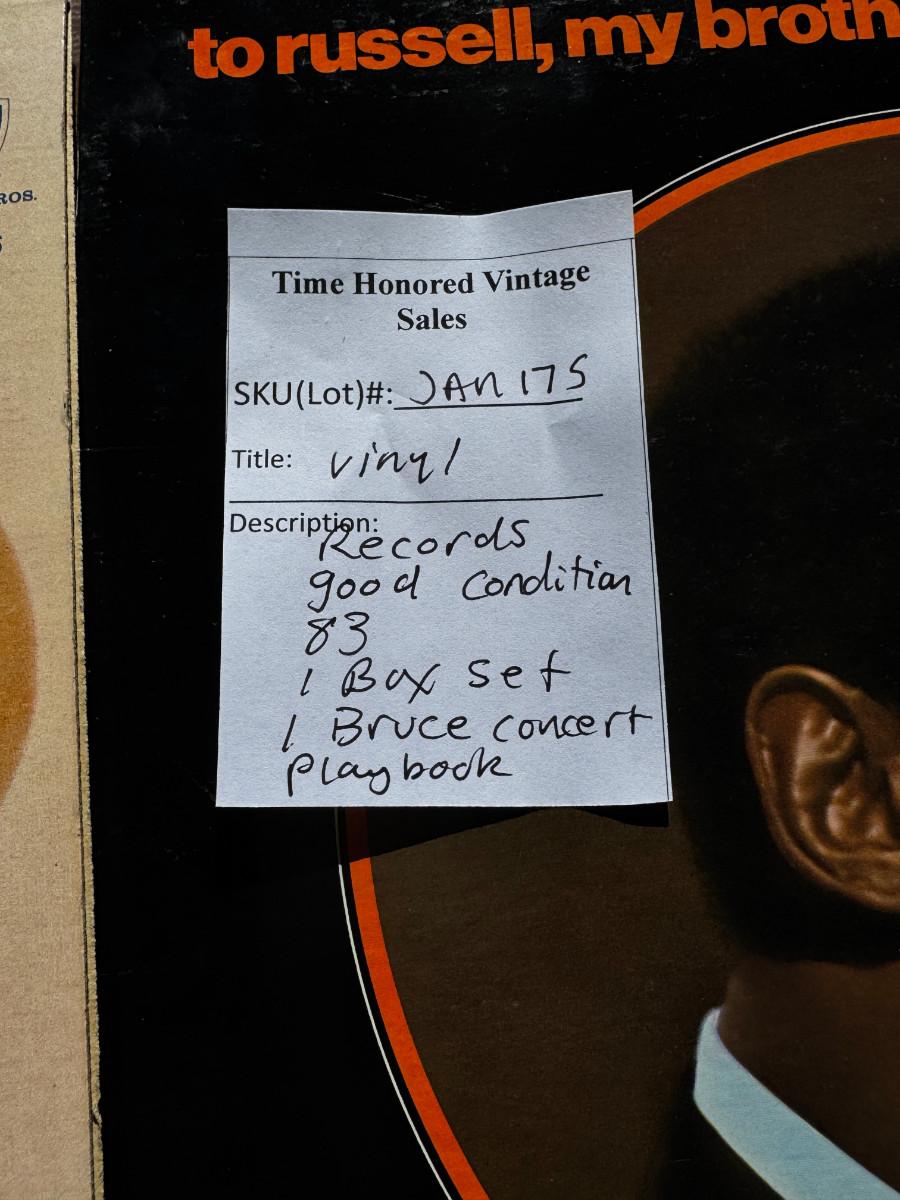 to russell, my broth
ROS.
Time Honored Vintage
Sales
SKU(Lot)#: JAN 175
Title: vinyl
Description:
Records
good condition
83
1 Box set
1 Bruce concert
playbook